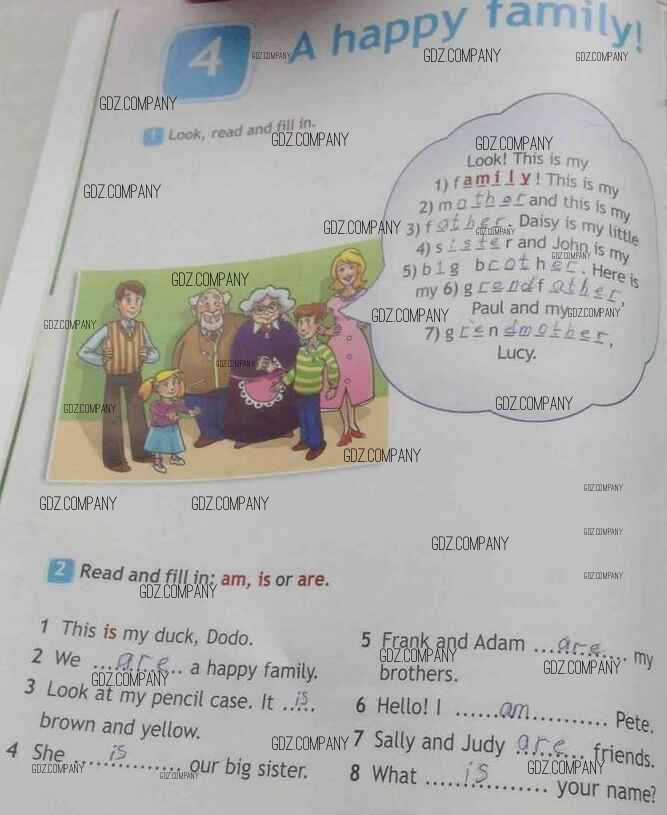 4 A happy family!
GDZ.COMPANY GDZ.COMPANY GDZ.COMPANY
GDZ.COMPANY
1 Look, read and fill in.
GDZ.COMPANY GDZ.COMPANY
Look! This is my
1) family! This is my
GDZ.COMPANY
2) mother and this is my
3) father. Daisy is my little
GDZ.COMPANY GDZ.COMPANY
4) sister and John is my
GDZ.COMPANY
5) big brother. Here is
GDZ.COMPANY
my 6) grendfather,
Paul and my
GDZ.COMPANY GDZ.COMPANY GDZ.COMPANY
7) grendmother,
Lucy.
GDZ.COMPANY
GDZ.COMPANY GDZ.COMPANY
GDZ.COMPANY
GDZ.COMPANY
GDZ.COMPANY GDZ.COMPANY
GDZ.COMPANY
GDZ.COMPANY
2 Read and fill in: am, is or are.
GDZ.COMPANY GDZ.COMPANY
1 This is my duck, Dodo.
2 We are a happy family.
GDZ.COMPANY
3 Look at my pencil case. It is
brown and yellow.
4 She is our big sister.
GDZ.COMPANY GDZ.COMPANY
5 Frank and Adam are my
GDZ.COMPANY GDZ.COMPANY
brothers.
6 Hello! I am Pete.
GDZ.COMPANY
7 Sally and Judy are friends.
GDZ.COMPANY
8 What is your name?